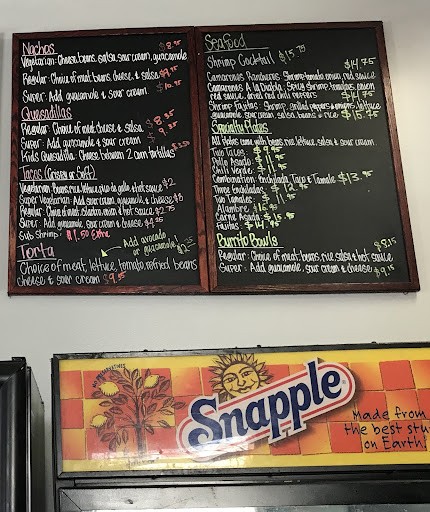 Nachos $8.95
Vegetarian: Cheese, beans, salsa, sour cream, guacamole
Regular: Choice of meat, beans, cheese, & salsa $9.95
Super: Add guacamole & sour cream $10.95
Quesadillas
Regular: Choice of meat, cheese, & salsa $8.95
Super: Add guacamole & sour cream $9.95
Kids Quesadilla: Cheese between 2 corn tortillas
Tacos (Crispy or Soft)
Vegetarian: Beans, rice, lettuce, pico de gallo, & hot sauce $2
Super Vegetarian: Add sour cream, guacamole, & cheese $3
Regular: Choice of meat, cilantro, onion, & hot sauce $2.75
Super: Add guacamole, sour cream & cheese $4.25
Sub Shrimp: $1.50 Extra
Add avocado
or guacamole
Torta
Choice of meat, lettuce, tomato, refried beans
cheese & sour cream $9.55
Seafood
Shrimp Cocktail $15.75
Camarones Rancheros: Shrimp, tomato, onion, red sauce $14.75
Camarones A La Diabla: Spicy Shrimp, tomatoes, onion
red sauce, dried red chile peppers $14.75
Shrimp Fajitas: Shrimp, grilled peppers & onions, lettuce
guacamole, sour cream, salsa, beans & rice $15.75
Specialty Plates
All Plates come with beans, rice, lettuce, salsa & sour cream
Two Tacos
Pollo Asado
Chili Verde
Combination: Enchilada, Taco & Tamale $13.95
Three Enchiladas $12.95
Two Tamales
Alambre $16.95
Carne Asada $15.95
Fajitas $14.95
Burrito Bowls
Regular: Choice of meat, beans, rice, salsa & hot sauce $8.15
Super: Add guacamole, sour cream & cheese $9.15
Snapple
Made from
the best stu
on Earth!